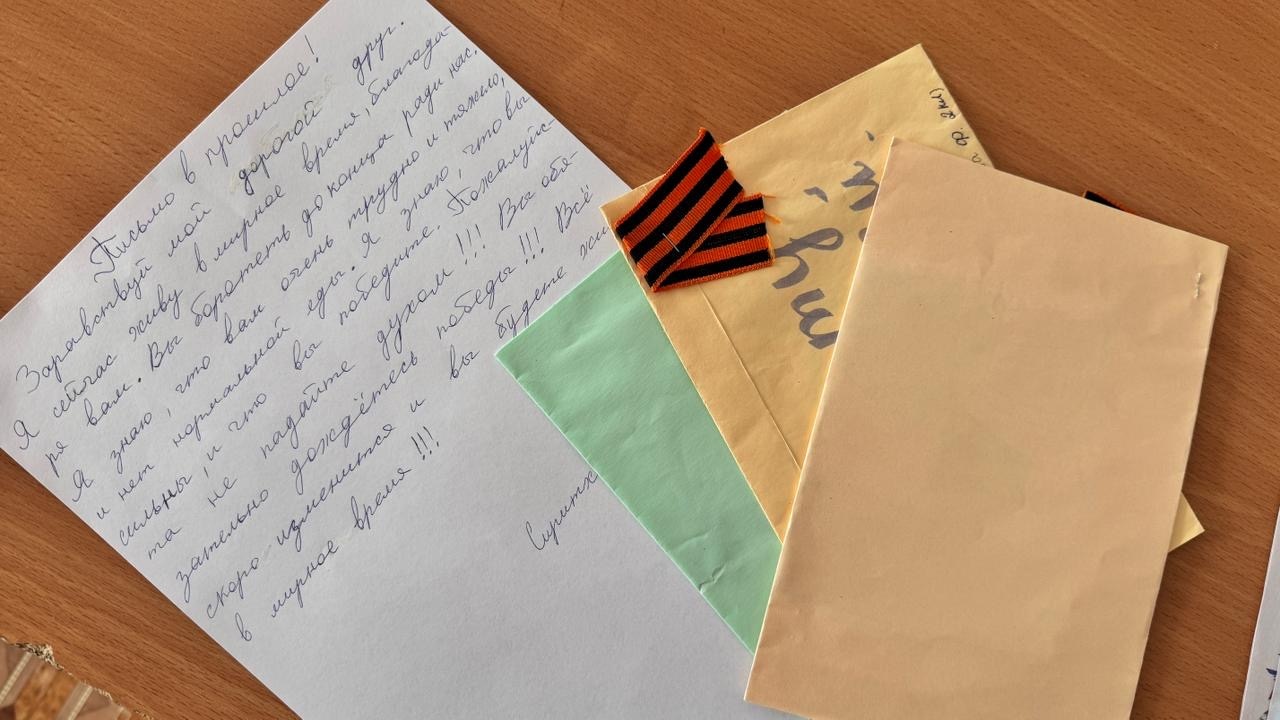 Письмо в прошлое!
Здравствуй мой дорогой друг.
Я сейчас живу в мирное время, благода-
ря вам. Вы боратесь до конца ради нас.
Я знаю, что вам очень трудно и тяжело,
и нет нормальной еды. Я знаю, что вы
сильны, и что вы победите. Пожалуйс-
та не падайте духом!!! Вы обя-
зательно дождётесь победы!!! Всё
скоро измениться и вы будете жи
в мирное время!!!